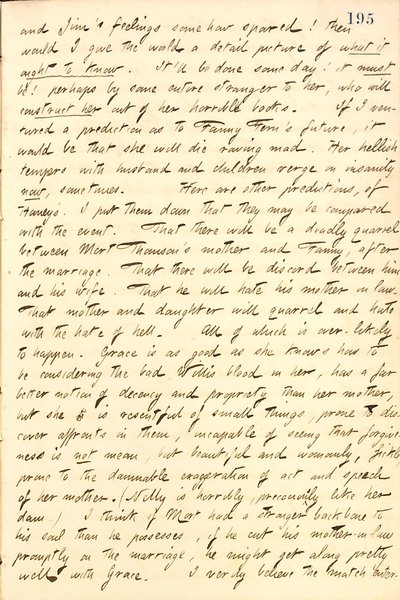 195
and Jim's feelings somehow spared! Then
would I give the world a detail picture of what it
ought to know. It'll be done some day! it must
be! perhaps by some entire stranger to her, who will
construct her out of her horrible books. If I ven-
tured a prediction as to Fanny Fern's future, it
would be that she will die raving mad. Her hellish
tempers with husband and children verge on insanity
now, sometimes. Here are other predictions, of
Haney's. I put them down that they may be compared
with the event. That there will be a deadly quarrel
between Mort Thomson's mother and Fanny, after
the marriage. That there will be discord between him
and his wife. That he will hate his mother in law.
That mother and daughter will quarrel and hate
with the hate of hell. All of which is over-likely
to happen. Grace is as good as she knows how to
be considering the bad Willis blood in her, has a far
better notion of decency and propriety than her mother,
but she is resentful of small things, prone to dis-
cover affronts in them, incapable of seeing that forgive-
ness is not mean but beautiful and womanly,
prone to the damnable exaggeration of act and speech
of her mother. (Nelly is horribly, precociously like her
dam.) I think if Mort had a stronger backbone to
his soul than he possesses, if he cut his mother-in-law
promptly on the marriage, he might get along pretty
well with Grace. I verily believe the match enter-